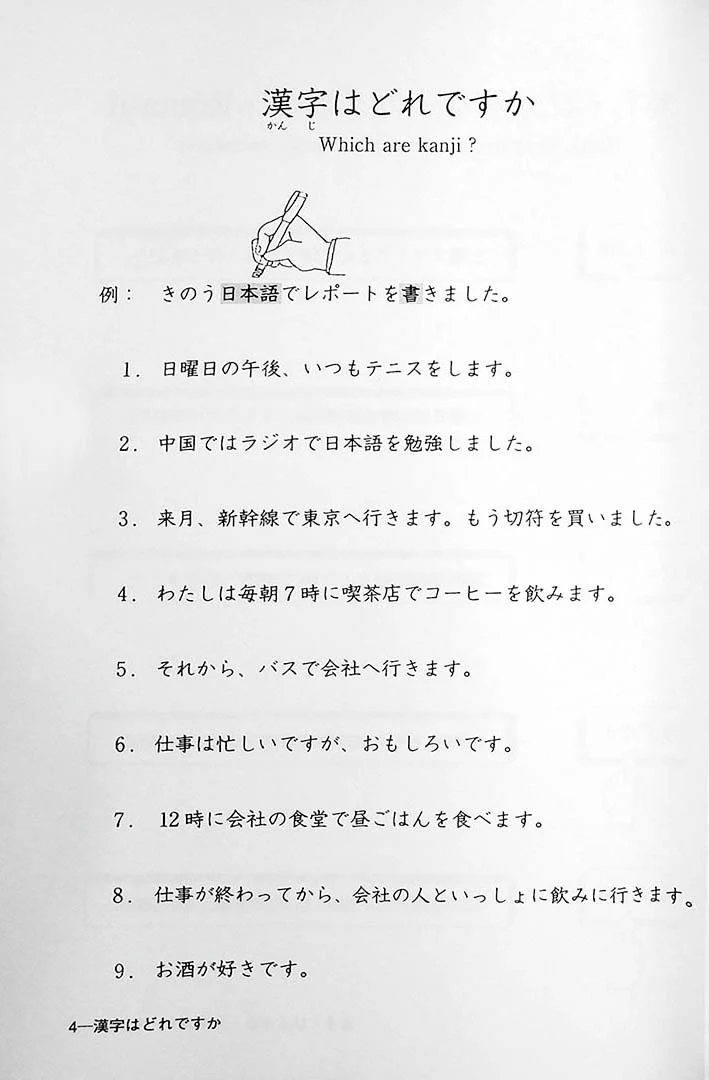 漢字はどれですか
かん じ
Which are kanji ?
例： きのう日本語でレポートを書きました。
1. 日曜日の午後、いつもテニスをします。
2. 中国ではラジオで日本語を勉強しました。
3. 来月、新幹線で東京へ行きます。もう切符を買いました。
4. わたしは毎朝7時に喫茶店でコーヒーを飲みます。
5. それから、バスで会社へ行きます。
6. 仕事は忙しいですが、おもしろいです。
7. 12時に会社の食堂で昼ごはんを食べます。
8. 仕事が終わってから、会社の人といっしょに飲みに行きます。
9. お酒が好きです。
4―漢字はどれですか